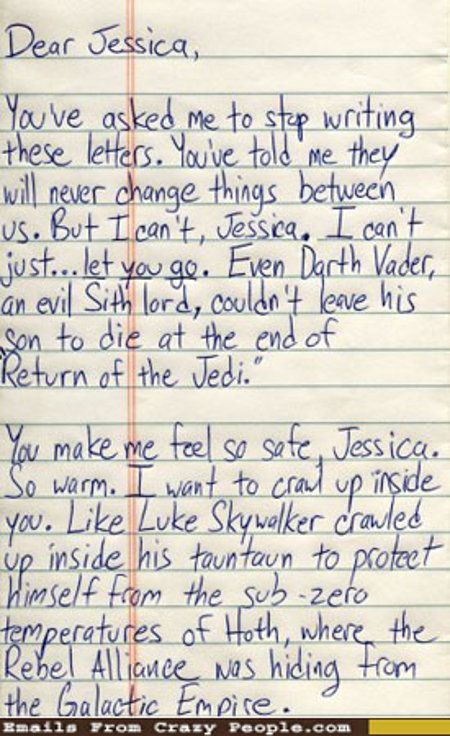 Dear Jessica,
You've asked me to stop writing
these letters. You've told me they
will never change things between
us. But I can't, Jessica. I can't
just...let you go. Even Darth Vader,
an evil Sith lord, couldn't leave his
son to die at the end of
"Return of the Jedi."
You make me feel so safe, Jessica.
So warm. I want to crawl up inside
you. Like Luke Skywalker crawled
up inside his tauntaun to protect
himself from the sub-zero
temperatures of Hoth, where the
Rebel Alliance was hiding from
the Galactic Empire.
Emails From Crazy People.com